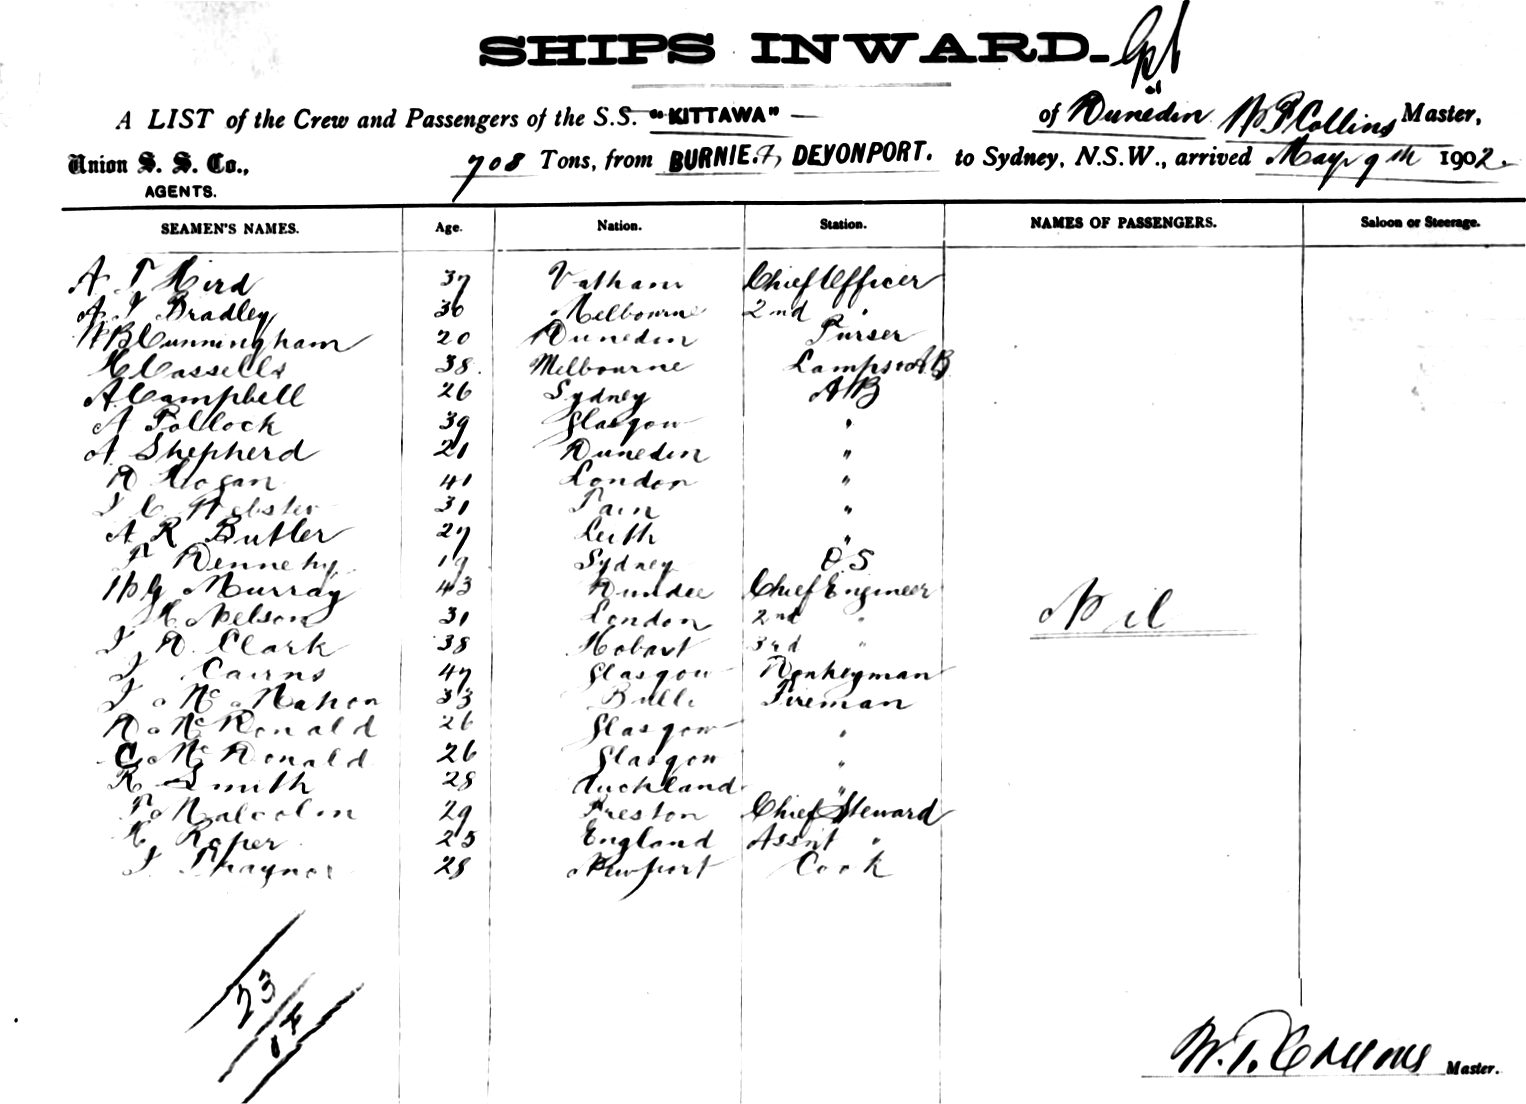 SHIPS INWARD.
A LIST of the Crew and Passengers of the S.S. "KITTAWA" — of Dunedin W P Collins Master,
Union S. S. Co., 708 Tons, from BURNIE. &, DEVONPORT. to Sydney, N.S.W., arrived May 9th 1902.
AGENTS.
SEAMEN'S NAMES. Age. Nation. Station. NAMES OF PASSENGERS. Saloon or Steerage.
A T Hird 37 Chief Officer
A J Bradley 36 Melbourne 2nd "
W B Cunningham 20 Dunedin Purser
H Cassells 38. Melbourne Lamps & AB
A Campbell 26 Sydney AB
A Pollock 39 Glasgow "
A. Shepherd 21 Dunedin "
D Hogan 41 London "
J C Webster 31 Tain "
A R Butler 27 Leith "
T Dennehy 19 Sydney O.S
W G Murray 43 Dundee Chief Engineer
H Nelson 31 London 2nd "
J D Clark 38 Hobart 3rd "
J Cairns 47 Glasgow Donkeyman
J McMahon 33 Bulli Fireman
D McDonald 26 Glasgow "
C McDonald 26 Glasgow "
R Smith 28 Auckland "
T Malcolm 29 Preston Chief Steward
H Roper 25 England Assnt "
J Traynor 28 Newport Cook
Nil
23
14
W. P. Collins Master.